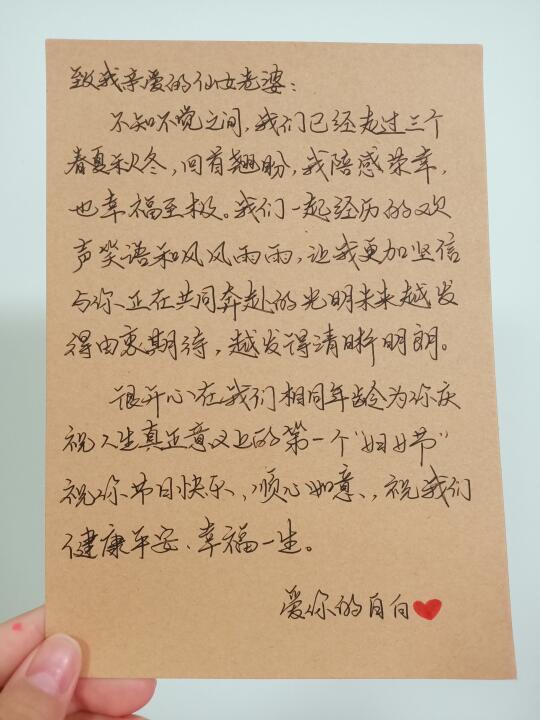 致我亲爱的仙女老婆：
不知不觉之间，我们已经走过三个
春夏秋冬，回首翘盼，我陪感荣幸，
也幸福至极。我们一起经历的欢
声笑语和风风雨雨，让我更加坚信
与你正在共同奔赴的光明未来越发
得由衷期待，越发得清晰明朗。
很开心在我们相同年龄为你庆
祝人生真正意义上的第一个“妇女节”
祝你节日快乐、顺心如意、，祝我们
健康平安、幸福一生。
爱你的